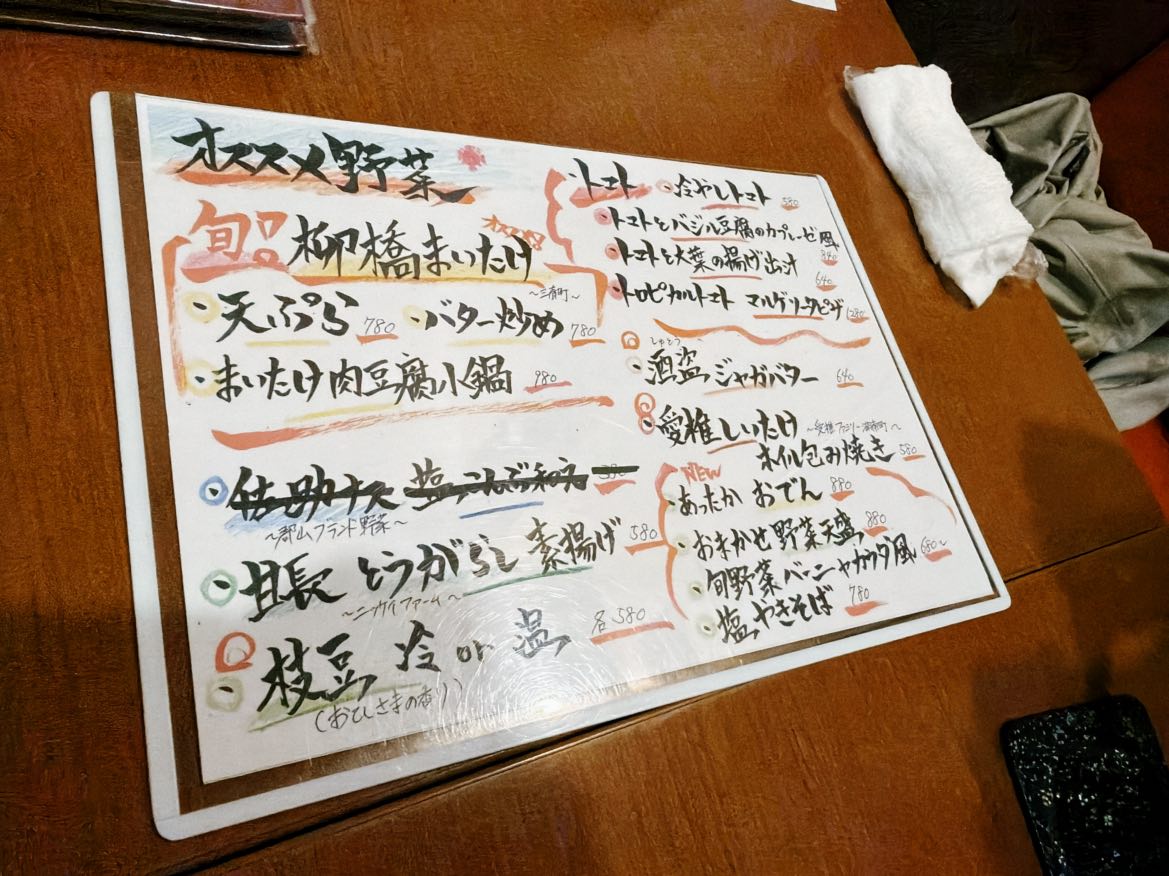 オススメ野菜
旬 柳橋まいたけ オススメ
・天ぷら 780 ・バター炒め 780
・まいたけ肉豆腐小鍋 980
・佐助ナス 塩こんぶ和え
～郡山ブランド野菜～
・甘長とうがらし 素揚げ 580
・枝豆 冷or温 各580
(おてしさまの香り)
・トマト ・冷やしトマト 580
・トマトとバジル豆腐のカプレーゼ風
・トマトと大葉の揚げ出汁 640
・トロピカルトマト マルゲリータピザ 1280
しゅとう
・酒盗ジャガバター 640
・愛椎しいたけ
ホイル包み焼き 580
NEW
・あったか おでん 880
・おまかせ野菜天盛 880
・旬野菜バーニャカウダ風 680～
・塩やきそば 780